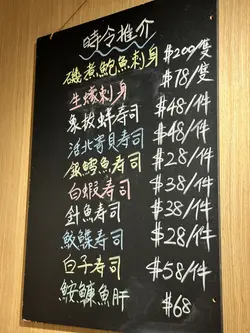 時令推介
磯煮鮑魚刺身 $209/隻
生蠔刺身 $78/隻
象拔蚌寿司 $48/件
活北寄貝寿司 $48/件
銀鱈魚寿司 $28/件
白蝦寿司 $38/件
針魚寿司 $38/件
鮫鰈寿司 $28/件
白子寿司 $58/件
鮟鱇魚肝 $68